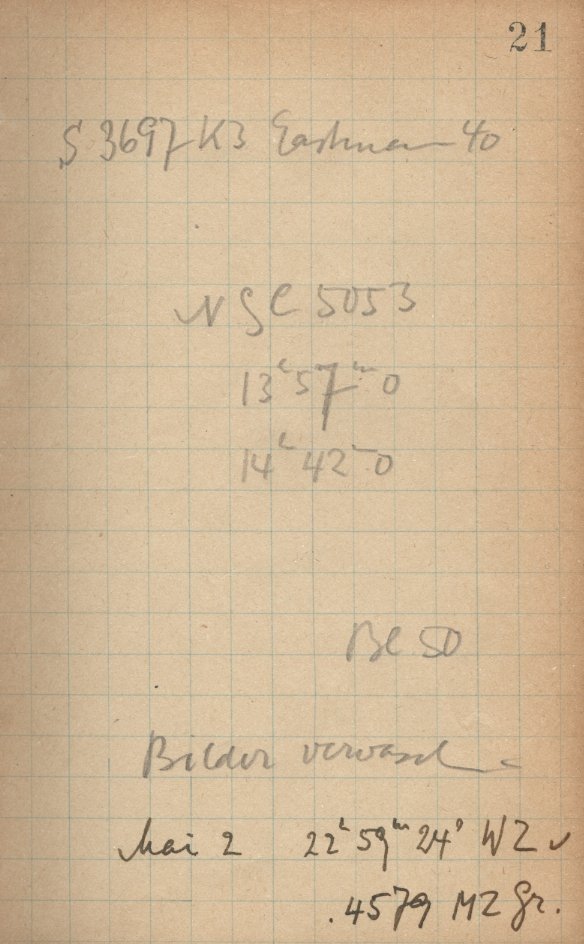 21
S 3697 K3 Eastman 40
NGC 5053
13ʰ 57ᵐ 0
14ʰ 42ᵐ 0
Bl 50
Bilder verwasch.
Mai 2 22ʰ 59ᵐ 24ˢ WZ ✓
.4579 MZ Gr.